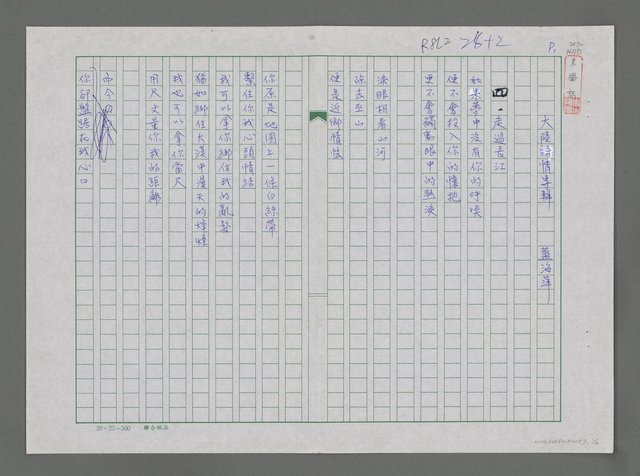 P1
R8L2 25+2
大陸詩情專輯 藍海萍
四·走過長江
如果夢中沒有你的呼喚
便不會投入你的懷抱
更不會觸動眼中的熱淚
淚眼相看山河
除去巫山
便是近鄉情怯
你原是地圖上一條白絲帶
繫住你我心頭情結
我可以拿你綁住我的亂髮
猶如綁住大漠中漫天的烽煙
我也可以拿你當尺
用尺丈量你我的距離
而今
你卻盤結在我心口
20×25=500 聯合紙品